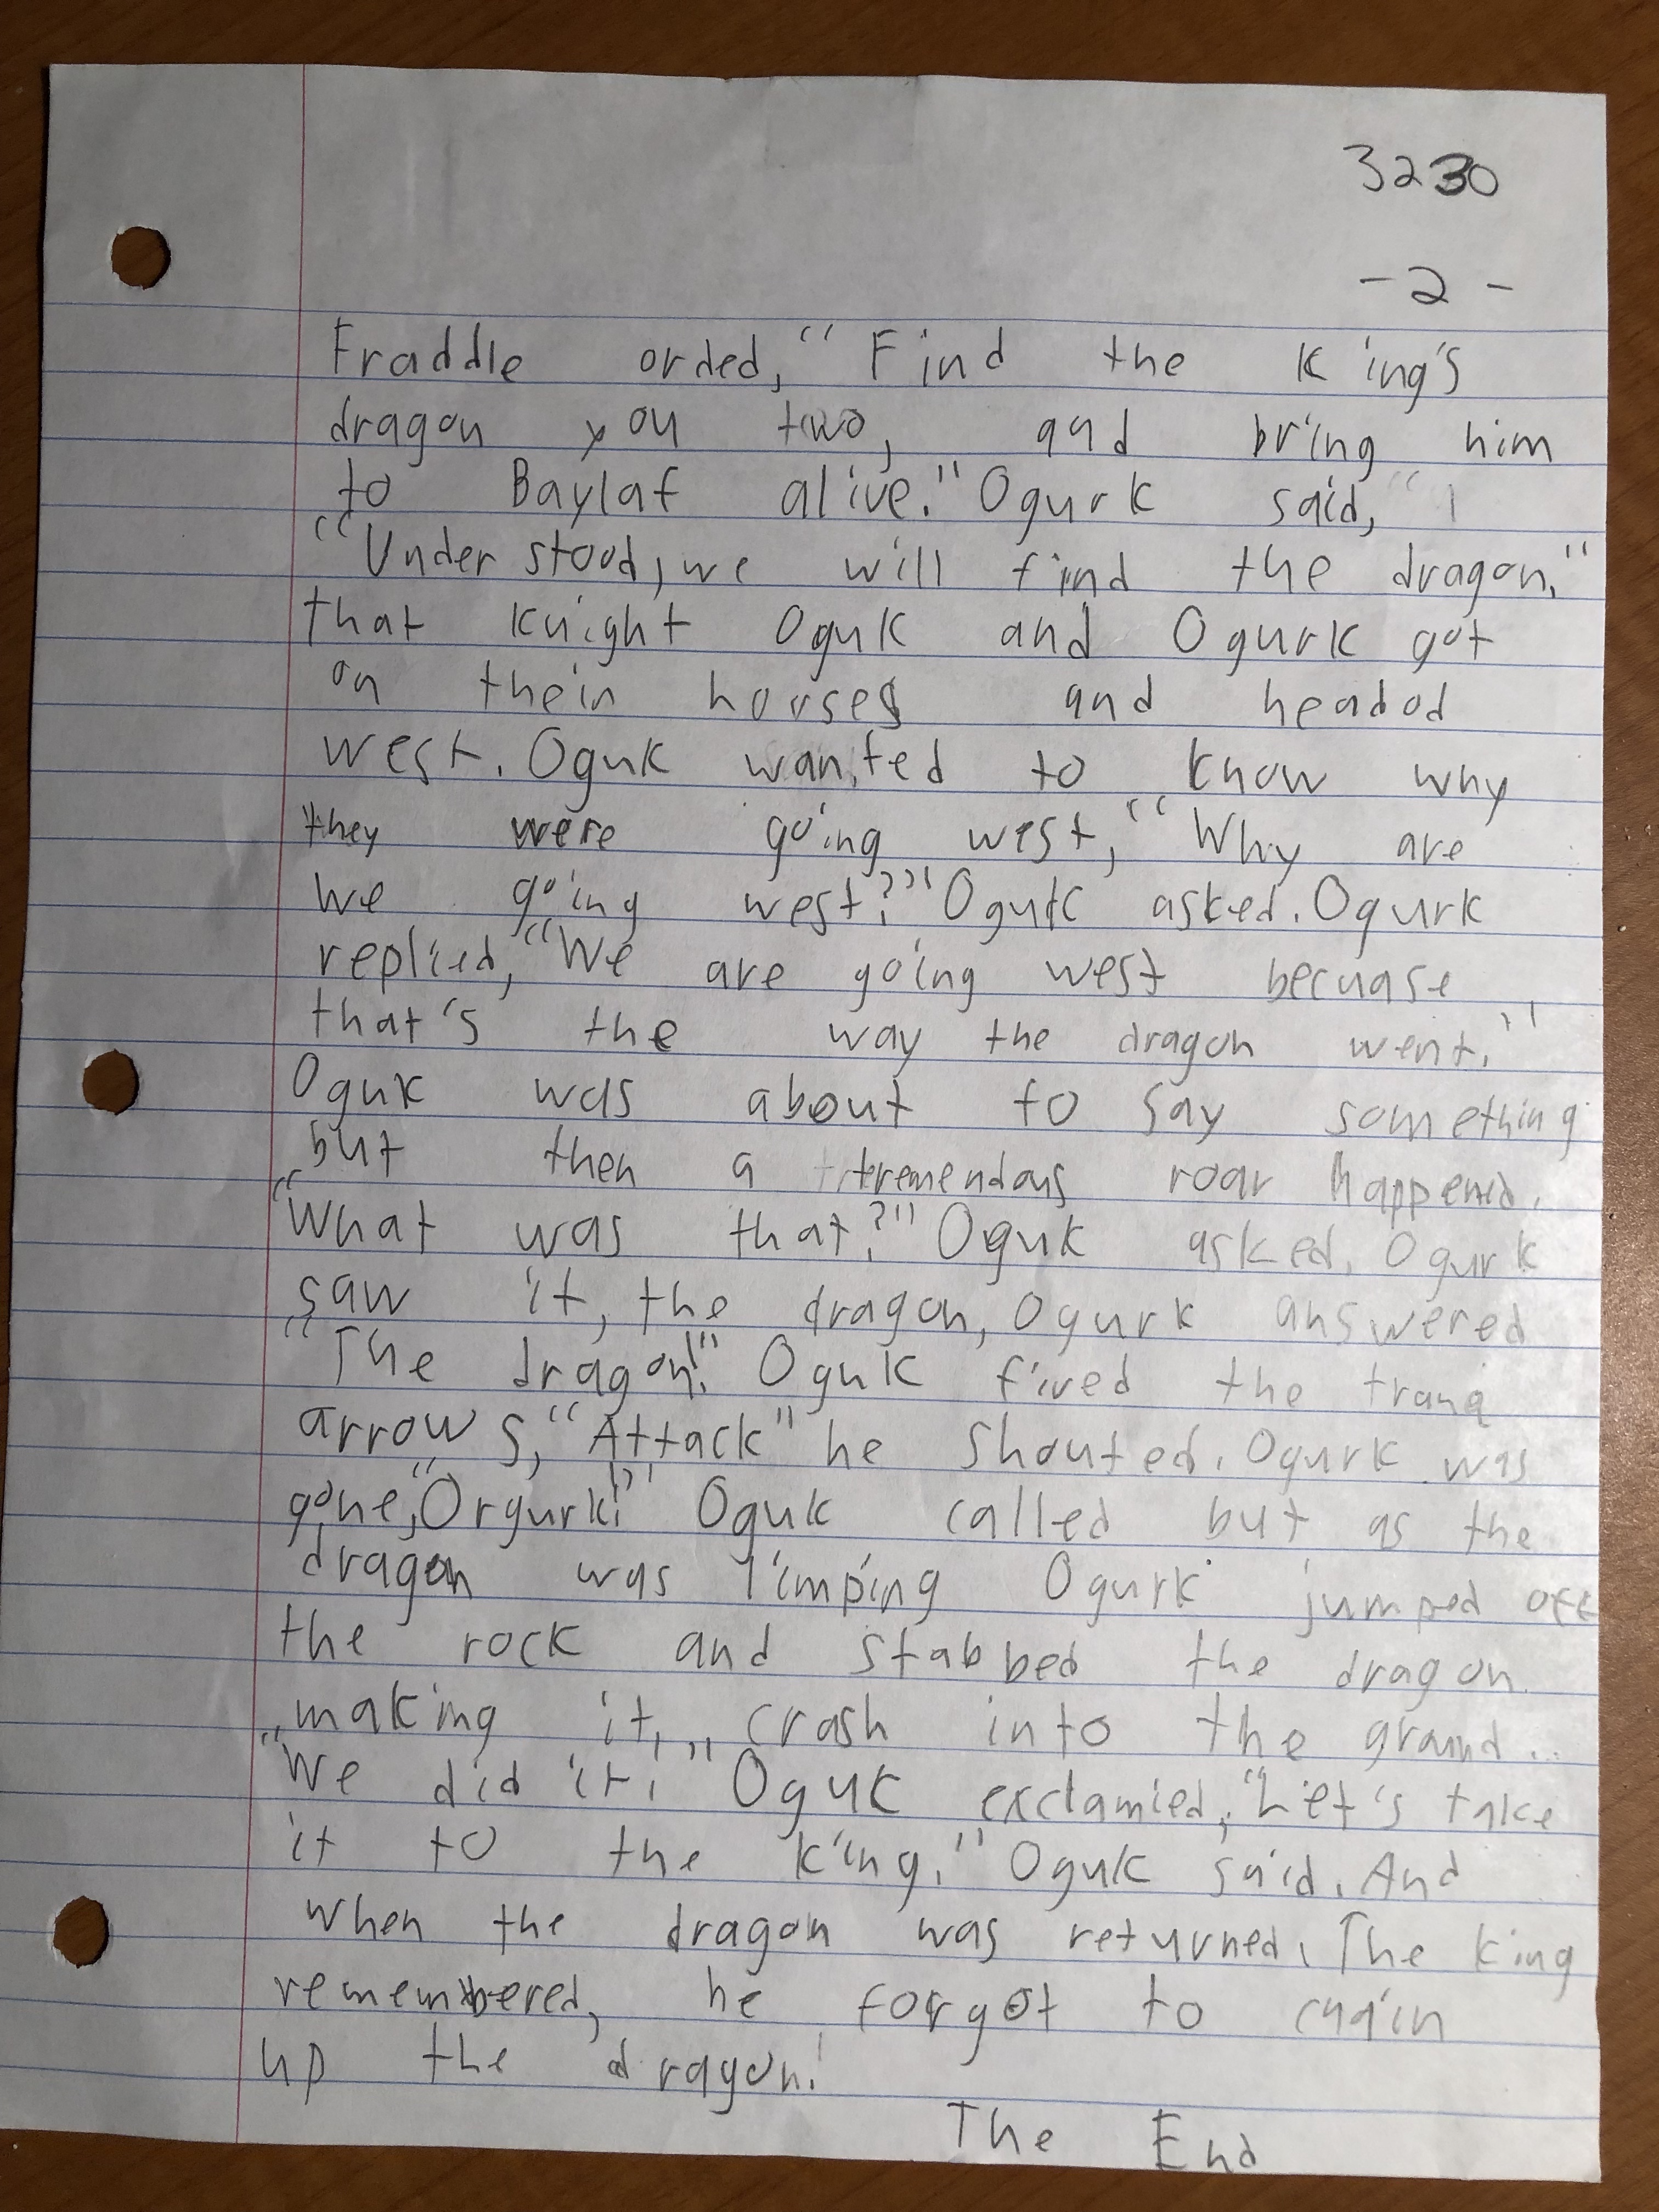 3230
- 2 -
Fraddle orded, "Find the King's
dragon you two, and bring him
to Baylaf alive." Ogurk said, "
"Under stood, we will find the dragon."
that knight Oguk and Ogurk got
on thein horses and headod
west. Oguk wanted to know why
they were going west, "Why are
we going west?" Oguk asked. Ogurk
replied, "We are going west becuase
that's the way the dragon went."
Oguk was about to say something
but then a tremendous roar happened.
"What was that?" Oguk asked. Ogurk
saw it, the dragon, Ogurk answered
"The dragon!" Oguk fired the tranq
arrows, "Attack" he shouted. Ogurk was
gone, "Orgurk!" Oguk called but as the
dragon was limping Ogurk jumped off
the rock and stabbed the dragon
making it, crash into the ground...
"We did it!" Oguk exclamied, "Let's take
it to the king." Oguk said. And
when the dragon was returned. The king
remembered, he forgot to chain
up the dragon!
The End